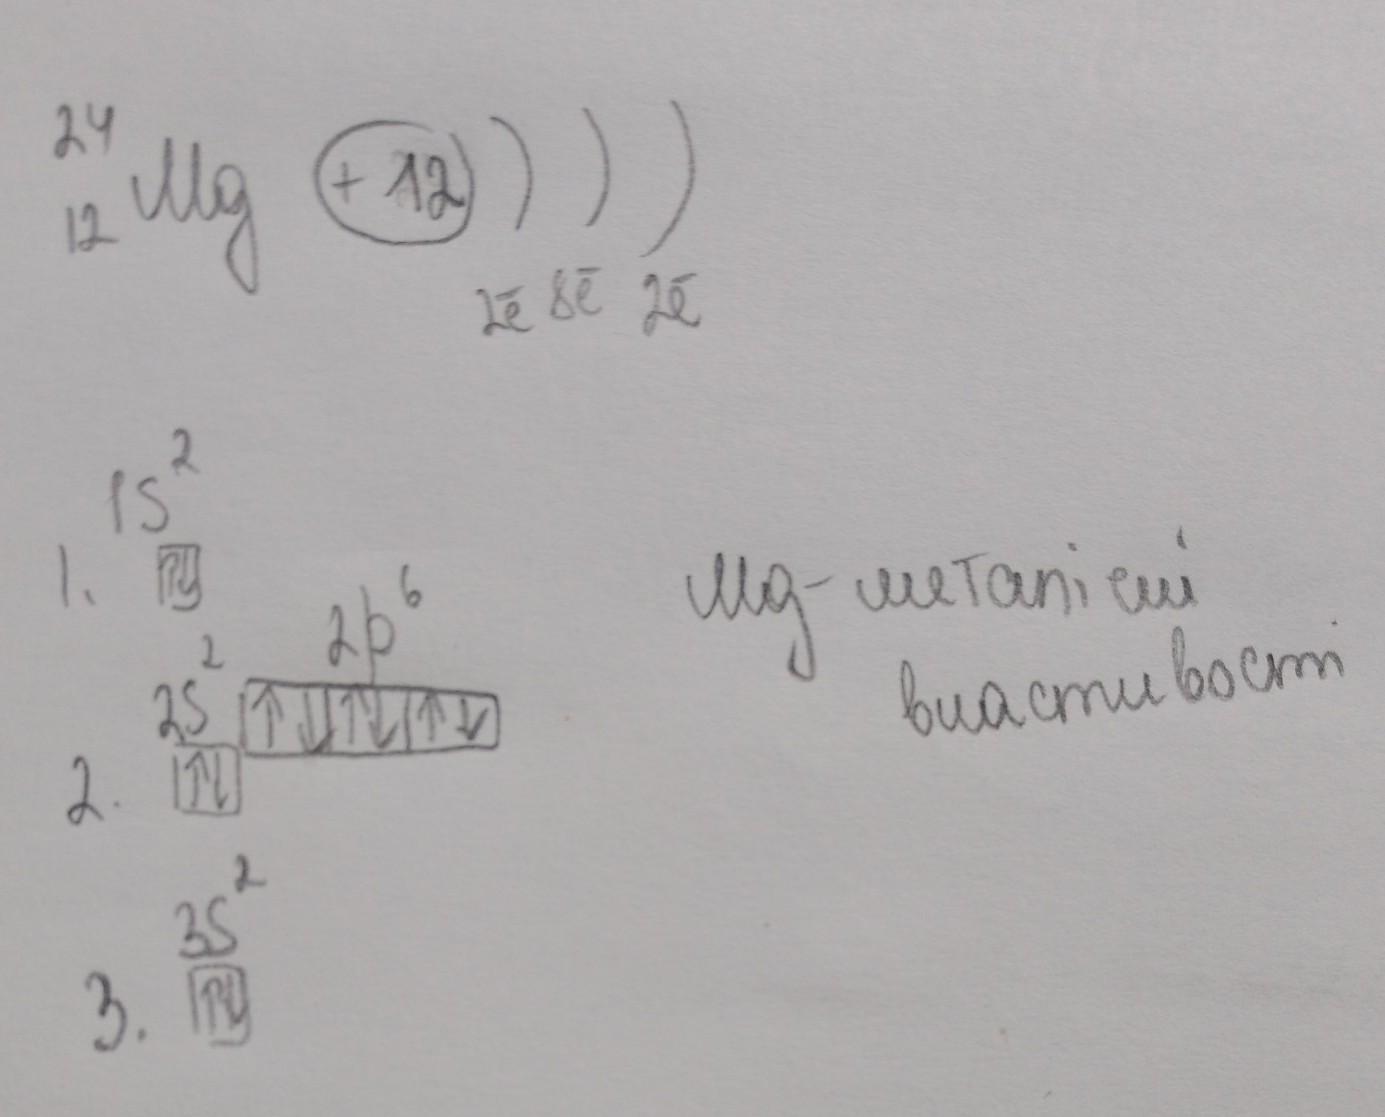 24
12 Mg +12 ) ) )
2ē 8ē 2ē
1s²
1. ↑↓
2s² 2p⁶
2. ↑↓ ↑↓ ↑↓ ↑↓
3s²
3. ↑↓
Mg - металічні
властивості